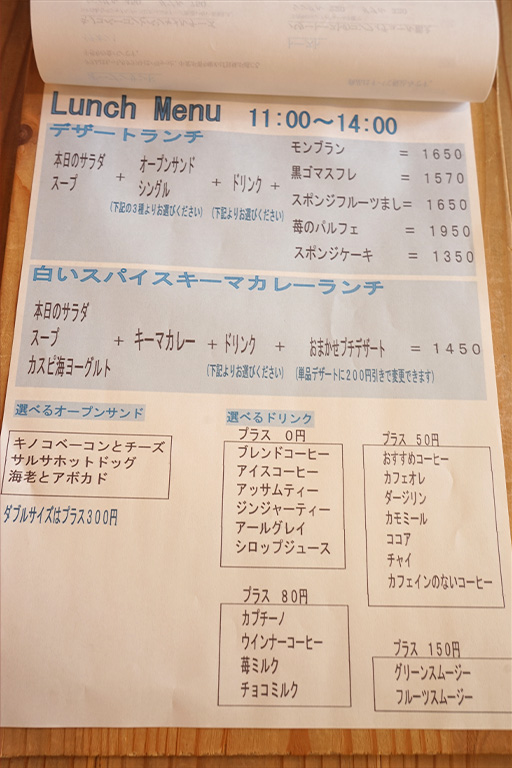 Lunch Menu 11:00～14:00
デザートランチ
本日のサラダ
スープ
+
オープンサンド
シングル
(下記の3種よりお選びください)
+ ドリンク +
(下記よりお選びください)
モンブラン = 1650
黒ゴマスフレ = 1570
スポンジフルーツまし= 1650
苺のパルフェ = 1950
スポンジケーキ = 1350
白いスパイスキーマカレーランチ
本日のサラダ
スープ
カスピ海ヨーグルト
+ キーマカレー + ドリンク + おまかせプチデザート = 1450
(下記よりお選びください) (単品デザートに200円引きで変更できます)
選べるオープンサンド
キノコベーコンとチーズ
サルサホットドッグ
海老とアボカド
ダブルサイズはプラス300円
選べるドリンク
プラス 0円
ブレンドコーヒー
アイスコーヒー
アッサムティー
ジンジャーティー
アールグレイ
シロップジュース
プラス 50円
おすすめコーヒー
カフェオレ
ダージリン
カモミール
ココア
チャイ
カフェインのないコーヒー
プラス 80円
カプチーノ
ウインナーコーヒー
苺ミルク
チョコミルク
プラス 150円
グリーンスムージー
フルーツスムージー